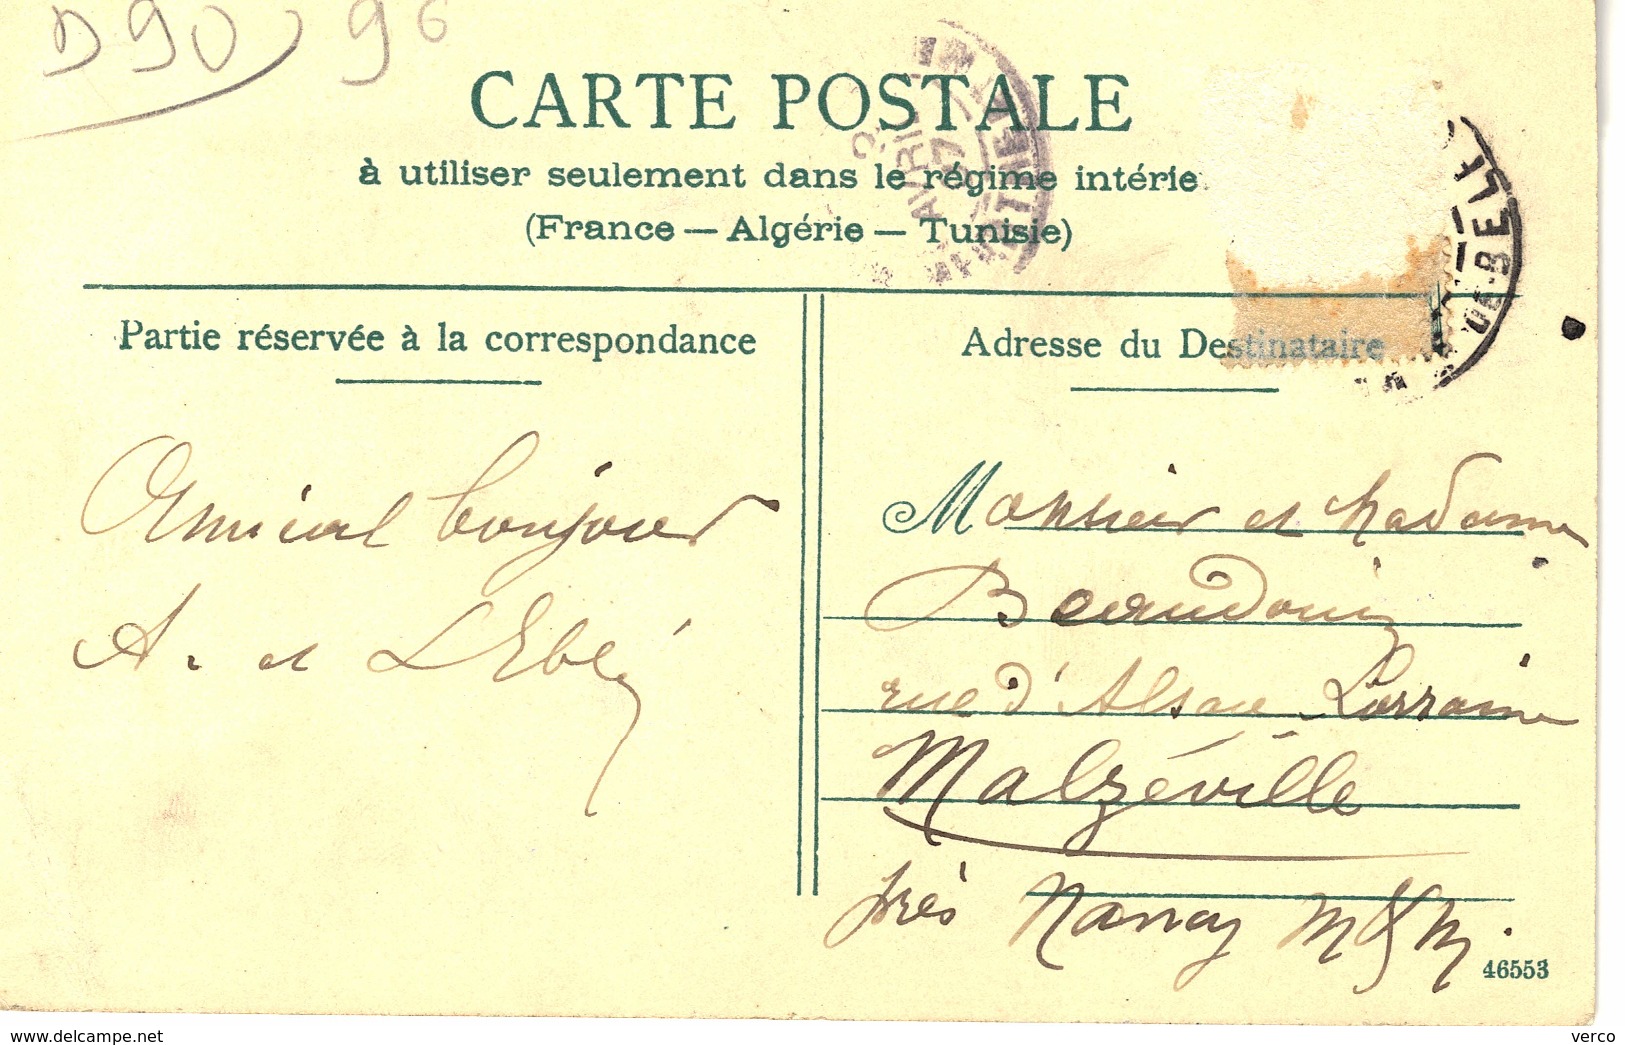 D90 96
CARTE POSTALE
à utiliser seulement dans le régime intérie
(France — Algérie — Tunisie)
Partie réservée à la correspondance
Adresse du Destinataire
Amical bonjour
A. et L Eblé
Monsieur et Madame
Beaudouin
rue d'Alsace Lorraine
Malzéville
près Nancy M & M.
46553
AVRIL
DE-BE
www.delcampe.net
verco